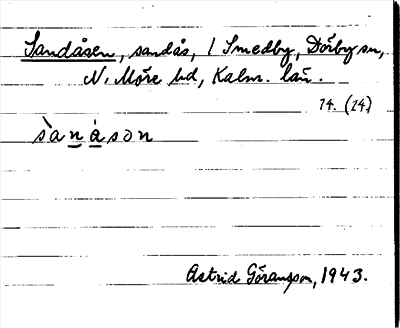 Sandåsen, sandås, i Smedby, Dörby sn,
N. Möre hd, Kalm. län.
14. (14)
sànáson
Astrid Göransson, 1943.